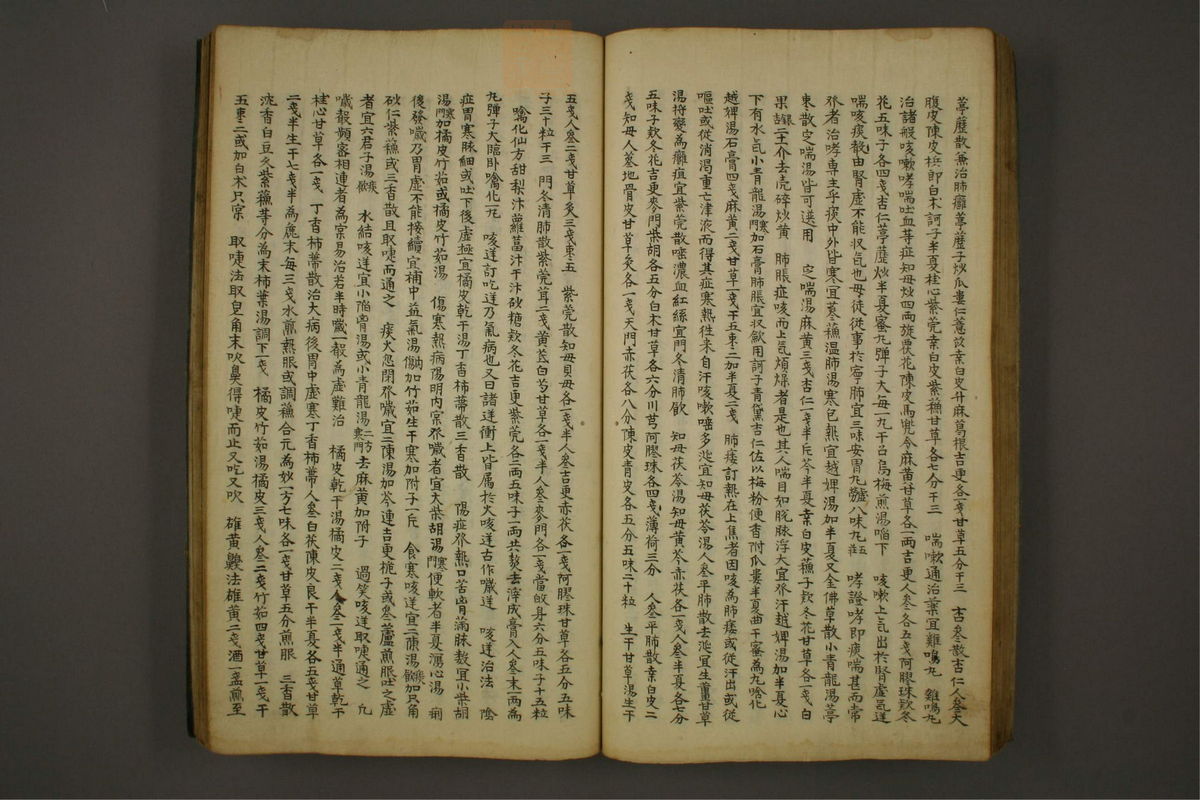 葶藶散兼治肺癰葶藶子炒瓜婁仁薏苡桑白皮升麻葛根吉更各一戔甘草五分干三 古參散吉仁人參大
腹皮陳皮兵郎白朮訶子半夏桂心紫菀桑白皮紫蘓甘草各七分干三 喘嗽通治藥宜雞鳴丸 雞鳴丸
治諸般咳嗽哮喘吐血等症知母炒四兩旋覆花陳皮馬兜令麻黃甘草各二兩吉更人參各五戔阿膠珠欵冬
花五味子各四戔杏仁葶藶炒半夏蜜丸彈子大每一丸干三烏梅煎湯嚼下 咳嗽上氣出於腎虛氣逆
喘咳痰皷由腎虛不能收氣也毋徒從事於寧肺宜三味安胃丸 八味丸五 哮證哮即痰喘甚而常
發者治哮專主乎痰中外皆寒宜蘓溫肺湯寒包熱宜越婢湯加半夏又金佛草散小青龍湯葶
枣散定喘湯皆可選用 定喘湯麻黃三戔杏仁一戔半片芩半夏桑白皮蘓子欵冬花甘草各一戔白
果二十一介去壳碎炒黃 肺脹症咳而上氣煩燥者是也其人喘目如脫脉浮大宜發汗越婢湯加半夏心
下有水氣小青龍湯寒門加石膏肺脹宜收歛用訶子青黛吉仁佐以海粉便香附瓜婁半夏曲干蜜為丸噙化
越婢湯石膏四戔麻黃二戔甘草一戔干五枣二加半夏二戔 肺痿訂熱在上焦者因咳為肺痿或從汗出或從
嘔吐或從消渴重亡津液而得其症寒熱徃来自汗咳嗽唾多涎宜知母茯苓湯人參平肺散去涎宜生薑甘草
湯將變為癰疽宜紫菀散嗌濃血紅絲宜門冬清肺飮 知母茯苓湯知母黃芩赤茯各一戔人參半夏各七分
五味子欵冬花吉更麥門柴胡各五分白朮甘草各六分川芎阿膠珠各四戔薄荷三分 人參平肺散桑白皮二
戔知母人參地骨皮甘草炙各一戔天門赤茯各八分陳皮青皮各五分五味二十粒 生干甘草湯生干
五戔人參二戔甘草炙三戔枣五 紫菀散知母貝母各一戔半人參吉更赤茯各一戔阿膠珠甘草各五分五味
子三十粒干三 門冬清肺散紫菀茸二戔黃芪白芍甘草各一戔半人參麥門各一戔當皈身六分五味子十五粒
噙化仙方甜梨汁蘿葍汁干汁砂糖欵冬花吉更紫菀各二兩五味子一兩共熬去滓成膏入參末一兩為
丸彈子大臨卧噙化一元 咳逆訂吃逆乃氣病也又曰諸逆衝上皆属於火咳逆古作噦逆 咳逆治法 陰
症胃寒脉細或吐下後虛極宜橘皮乾干湯丁香柿蒂散三香散 陽症發熱口苦胷滿脉数宜小柴胡
湯寒門加橘皮竹茹或橘皮竹茹湯 傷寒熱病陽明内宲發噦者宜大柴胡湯寒門便軟者半夏瀉心湯 痢
後發噦乃胃虛不能接續宜補中益氣湯加竹茹生干寒加附子一斤 食寒咳逆宜二陳湯加只角
砂仁紫蘓或三香散且取嚏而通之 痰火㤪閉發噦宜二陳湯加芩連吉更梔子或參蘆煎服吐之虛
者宜六君子湯 水結咳逆宜小陷胷湯或小青龍湯去麻黃加附子 過笑咳逆取嚏通之 凡
噦皷頻密相連者為宲易治若半時噦一皷為虛難治 橘皮乾干湯橘皮二戔人參一戔半通草乾干
桂心甘草各一戔 丁香柿蒂散治大病後胃中虛寒丁香柿蒂人參白茯陳皮良干半夏各五戔甘草
二戔半生干七戔半為麁末每三戔水煎熱服或調蘓合元為妙一方七味各一戔甘草五分煎服 三香散
沈香白豆久紫蘓等分為末柿葉湯調下一戔 橘皮竹茹湯橘皮三戔人參二戔竹茹四戔甘草一戔干
五枣二或加白朮只宲 取嚏法取皂角末吹鼻得嚏而止又吃又吹 雄黃法雄黃二戔酒一盞煎至